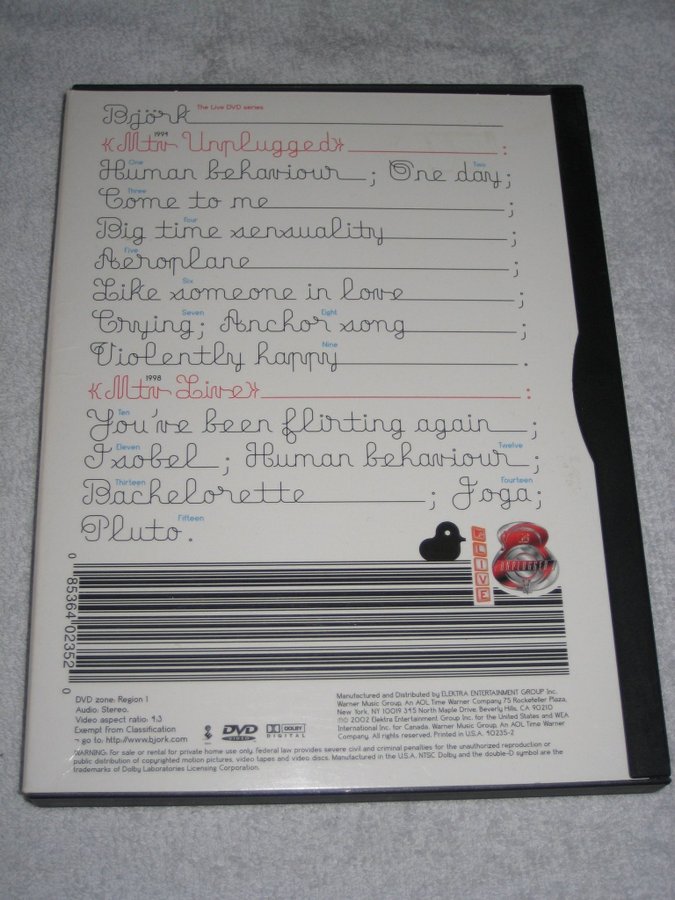 Björk The Live DVD series
1994
«Mtv Unplugged» :
One Two
Human behaviour ; One day;
Three
Come to me ;
Four
Big time sensuality ;
Five
Aeroplane ;
Six
Like someone in love ;
Seven Eight
Crying; Anchor song ;
Nine
Violently happy .
1998
«Mtv Live» :
Ten
You've been flirting again ;
Eleven Twelve
Isobel ; Human behaviour ;
Thirteen Fourteen
Bachelorette ; Joga;
Fifteen
Pluto .
LIVE
UNPLUGGED
0 85364 02352 0
DVD zone: Region 1
Audio: Stereo.
Video aspect ratio: 4:3
Exempt from Classification
> go to: http://www.bjork.com
DVD VIDEO
DOLBY DIGITAL
Manufactured and Distributed by ELEKTRA ENTERTAINMENT GROUP Inc.
Warner Music Group, An AOL Time Warner Company 75 Rockefeller Plaza,
New York, NY 10019 345 North Maple Drive, Beverly Hills, CA 90210
℗© 2002 Elektra Entertainment Group Inc. for the United States and WEA
International Inc. for Canada. Warner Music Group, An AOL Time Warner
Company. All rights reserved. Printed in U.S.A. 40235-2
WARNING: For sale or rental for private home use only. federal law provides severe civil and criminal penalties for the unauthorized reproduction or
public distribution of copyrighted motion pictures, video tapes and video discs. Manufactured in the U.S.A. NTSC Dolby and the double-D symbol are the
trademarks of Dolby Laboratories Licensing Corporation.